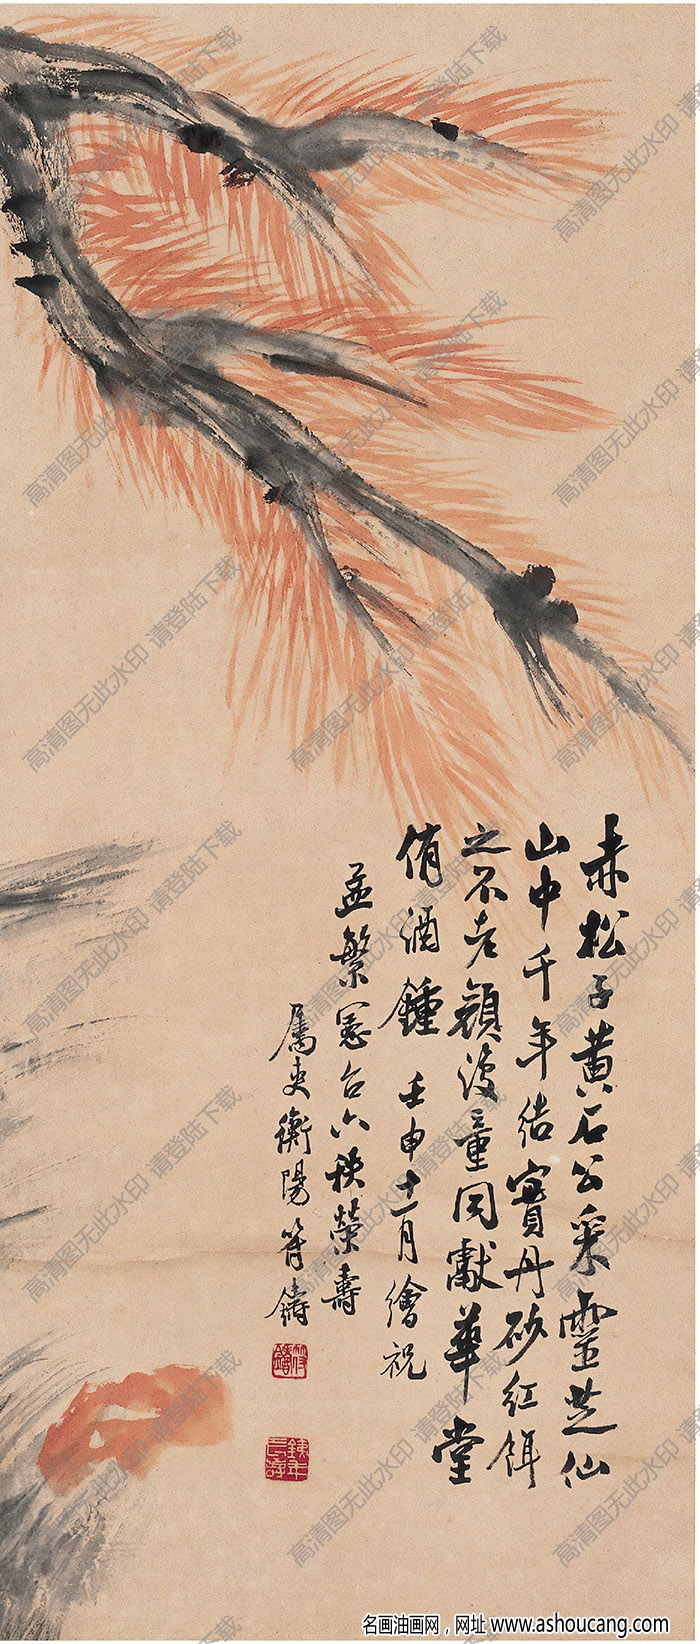 赤松子黄石公采靈芝仙
山中千年结實丹砂红餌
之不老顏渡童同獻華堂
侑酒鍾 壬申十一月繪祝
孟繁憲台六秩荣壽
属吏衡陽符鑄
符鑄
高清图无此水印 请登陆下载
名画油画网，网址 www.ashoucang.com